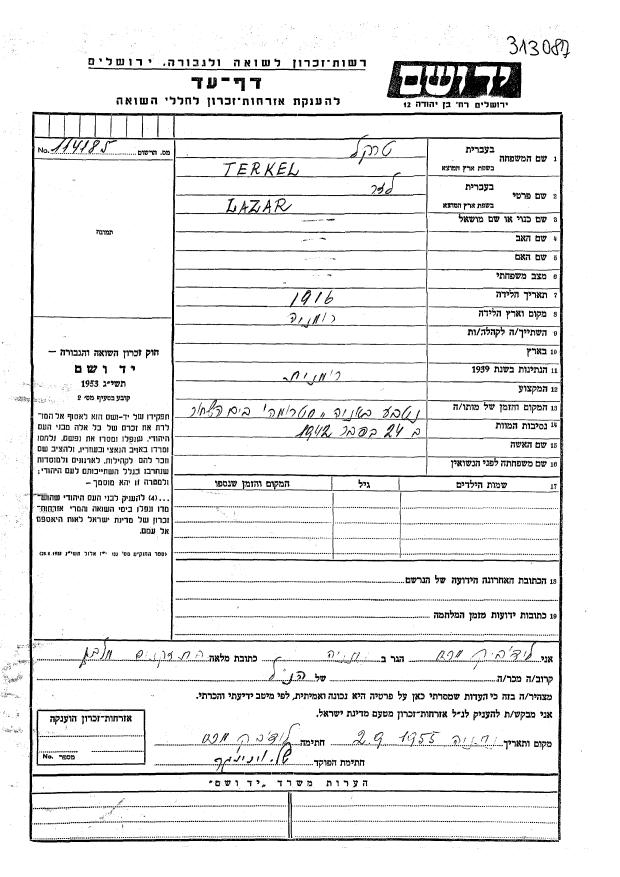 313087
רשות-זכרון לשואה ולגבורה, ירושלים
דף-עד
להענקת אזרחות-זכרון לחללי השואה
יד ושם
ירושלים רח' בן יהודה 12
מס. הרשום 114185 No.
תמונה
חוק זכרון השואה והגבורה —
יד ושם
תשי"ג 1953
קובע בסעיף מס' 2
תפקידו של יד-ושם הוא לאסוף אל המו-
לדת את זכרם של כל אלה מבני העם
היהודי, שנפלו ומסרו את נפשם, נלחמו
ומרדו באויב הנאצי ובעוזריו, ולהציב שם
וזכר להם לקהילות, לארגונים ולמוסדות
שנחרבו בגלל השתייכותם לעם היהודי;
ולמטרה זו יהא מוסמך —
...(4) להעניק לבני העם היהודי שהוש-
מדו ונפלו בימי השואה והמרי אזרחות-
זכרון של מדינת ישראל לאות היאספם
אל עמם.
1 שם המשפחה בעברית טרקל
בשפת ארץ המוצא TERKEL
2 שם פרטי בעברית לזר
בשפת ארץ המוצא LAZAR
3 שם כנוי או שם מושאל —
4 שם האב —
5 שם האם —
6 מצב משפחתי —
7 תאריך הלידה 1916
8 מקום וארץ הלידה רומניה
9 השתייך/ה לקהלה/ות
10 בארץ
11 הנתינות בשנת 1939 רומנית
12 המקצוע
13 המקום והזמן של מותו/ה נטבע באניה "סטרומה" בים השחור
14 נסיבות המוות ב 24 בפבר 1942
15 שם האשה
16 שם משפחתה לפני הנשואין
17 שמות הילדים גיל המקום והזמן שנספו
18 הכתובת האחרונה הידועה של הנרשם
19 כתובות ידועות מזמן המלחמה
אני הגר ב נתניה כתובת מלאה
קרוב/ה מכר/ה של הנ"ל
מצהיר/ה בזה כי העדות שמסרתי כאן על פרטיה היא נכונה ואמיתית, לפי מיטב ידיעתי והכרתי.
אני מבקש/ת להעניק לנ"ל אזרחות-זכרון מטעם מדינת ישראל.
מקום ותאריך נתניה 2.9 1955 חתימה
חתימת הפוקד
אזרחות-זכרון הוענקה
מספר No.
הערות משרד "יד ושם"